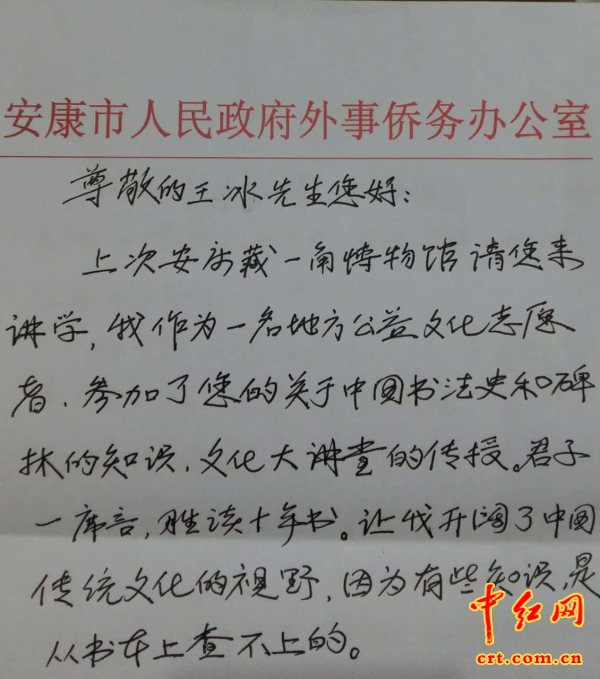 安康市人民政府外事侨务办公室
尊敬的王冰先生您好：
上次安康藏一角博物馆请您来
讲学，我作为一名地方公益文化志愿
者，参加了您的关于中国书法史和碑
林的知识，文化大讲堂的传授。君子
一席言，胜读十年书。让我开阔了中国
传统文化的视野，因为有些知识，是
从书本上查不上的。
中红网
crt.com.cn